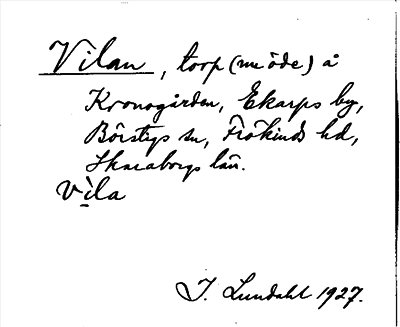 Vilan, torp (nu öde) å
Kronogården, Ekarps by,
Börstigs sn, Frökinds hd,
Skaraborgs län.
Vila
J. Lundahl 1927.